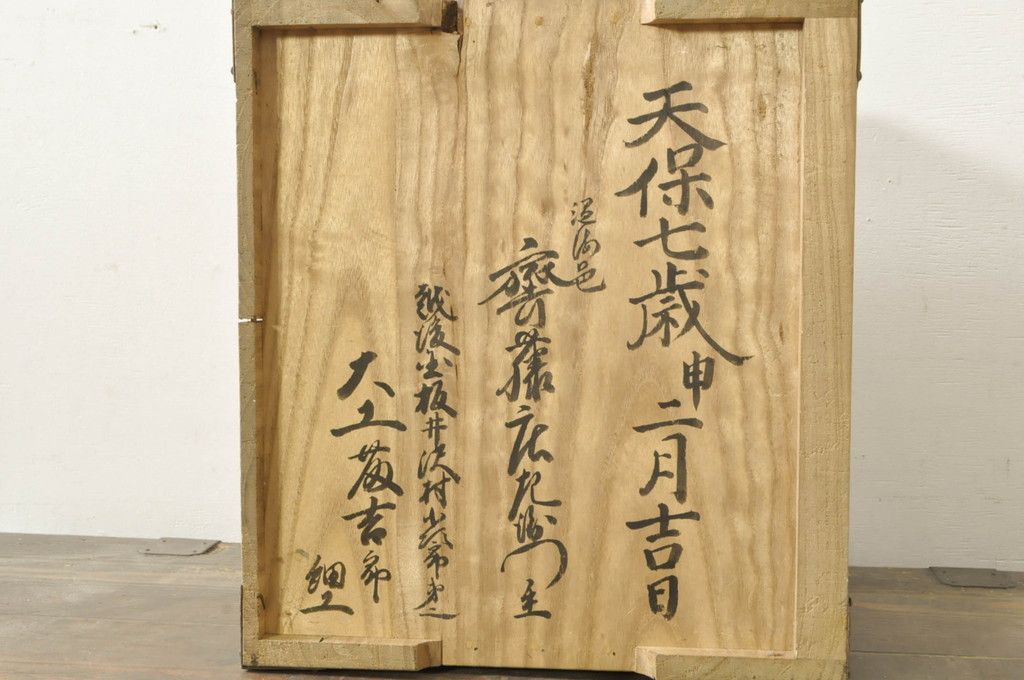 天保七歳申二月吉日
邑
齋藤庄左衛門主
越後国板井沢村
大工藤吉郎
細工